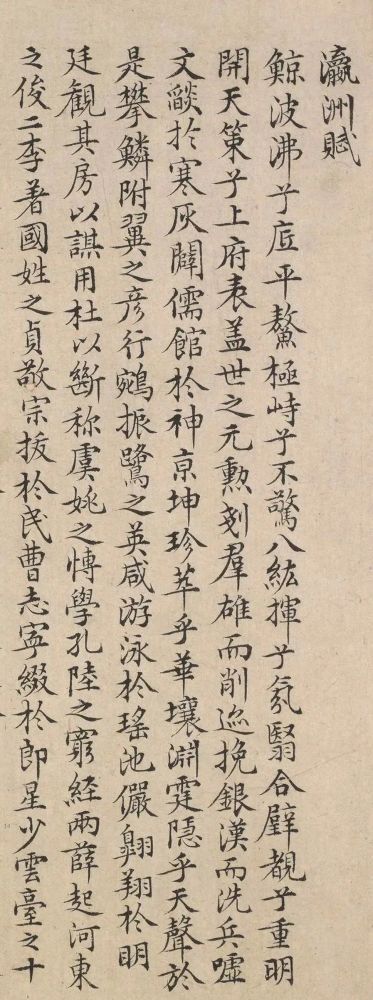 瀛洲賦
鯨波沸兮底平鰲極峙兮不驚八紘揮兮氛翳合璧覩兮重明
開天策兮上府表盖世之元勲剗羣雄而削迹挽銀漢而洗兵噓
文燄於寒灰闢儒館於神京坤珍萃乎華壤淵霆隱乎天聲於
是攀鱗附翼之彦行鵷振鷺之英咸游泳於瑤池儼翺翔於明
廷觀其房以謀用杜以斷称虞姚之博學孔陸之窮經兩薛起河東
之俊二李著國姓之貞敬宗拔於民曹志寧綴於郎星少雲臺之十